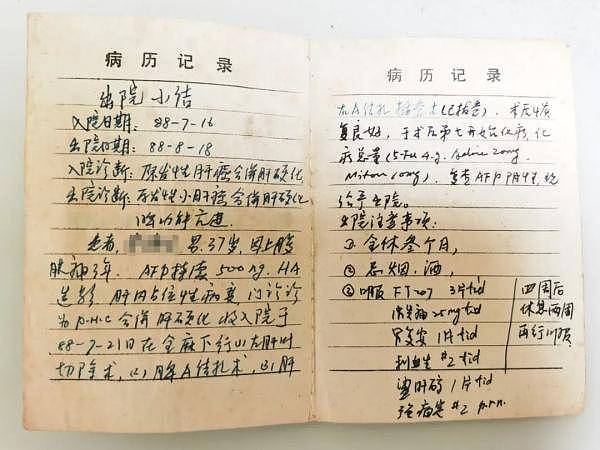 病历记录
出院小结
入院日期：88-7-16
出院日期：88-8-18
入院诊断：原发性肝癌合併肝硬化
出院诊断：原发性小肝癌合併肝硬化
脾功能亢进.
患者, 男. 37岁, 因上腹
胀痛3年. AFP持续500ng. HA
肝内占位性病变 门诊诊
为P.H.C合併肝硬化收入院于
88-7-21日在全麻下行(1)左肝叶
切除术, (2)脾A结扎术, (3)肝
病历记录
右A结扎 插管术(已拔管). 术后
复良好, 于术后第七开始化疗, 化
疗总量(5-Fu 4.g.
Mitom 10mg). 复查AFP阴性, 现
给予出院.
出院注意事项:
① 全休叁个月,
② 忌烟.酒,
③ 口服 FT207 3片tid
25mg tid
胃复安 1片tid
利血生 #2 tid
1片tid
#2 p.r.n.
四周后
休息两周
再行口服